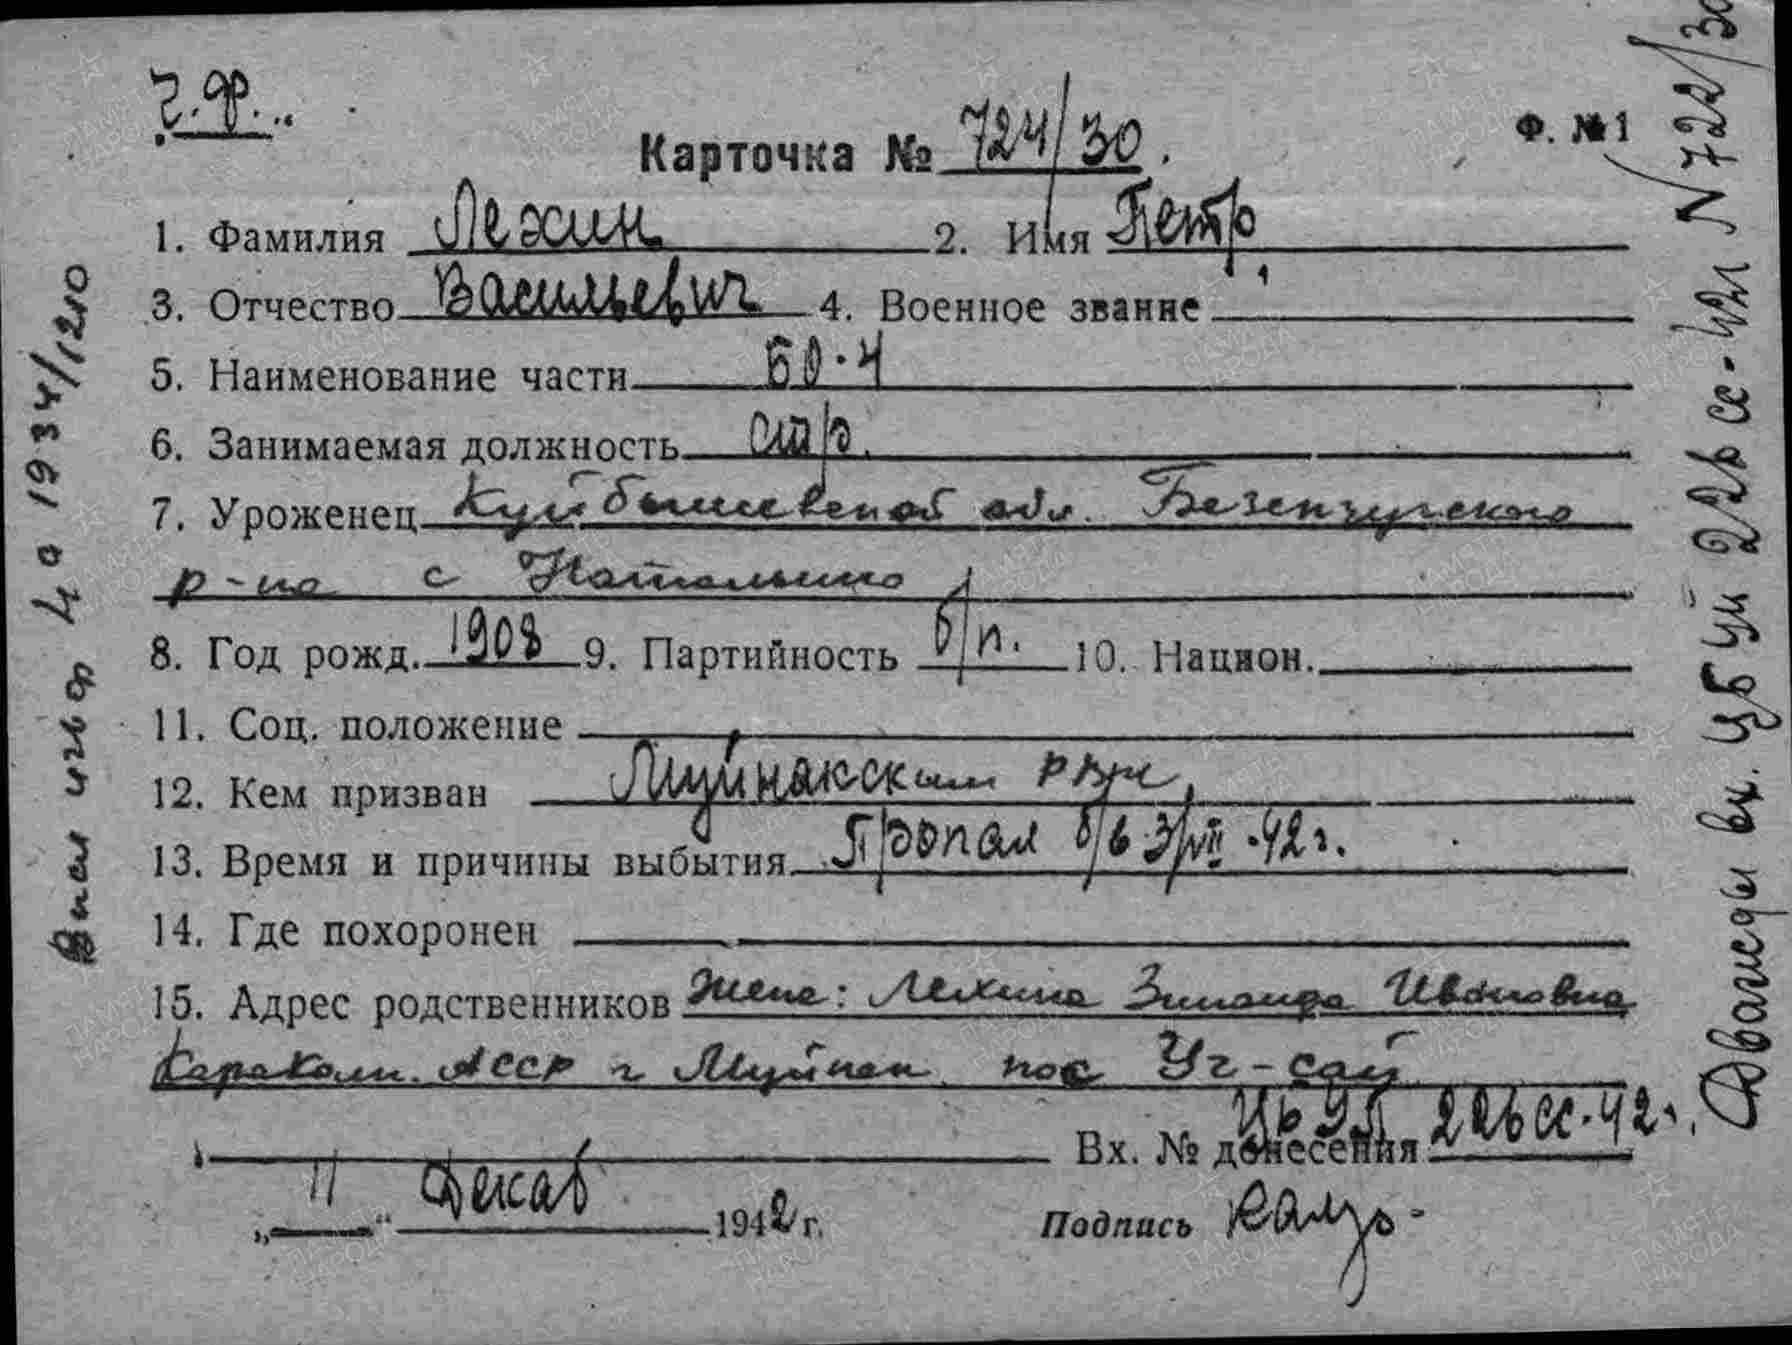 Ч.Ф.
Карточка № 724/30. Ф. №1
1. Фамилия Лехин 2. Имя Петр
3. Отчество Васильевич 4. Военное звание
5. Наименование части 60·4
6. Занимаемая должность стр.
7. Уроженец Куйбышевской обл. Безенчугского
р-на с Натальино
8. Год рожд. 1908 9. Партийность б/п. 10. Национ.
11. Соц. положение
12. Кем призван Муйнакским РВК
13. Время и причины выбытия Пропал б/в 3/VII·42г.
14. Где похоронен
15. Адрес родственников Жена: Лехина Зинаида Ивановна
Каракалп. АССР г Муйнак пос Уч-сай
Вх. № донесения ЦБ УП 226сс·42г.
„11“ Декаб 1942 г. Подпись
40 1934/1240
вх. ЦБ УП 226сс-42г N 722/30
ПАМЯТЬ НАРОДА